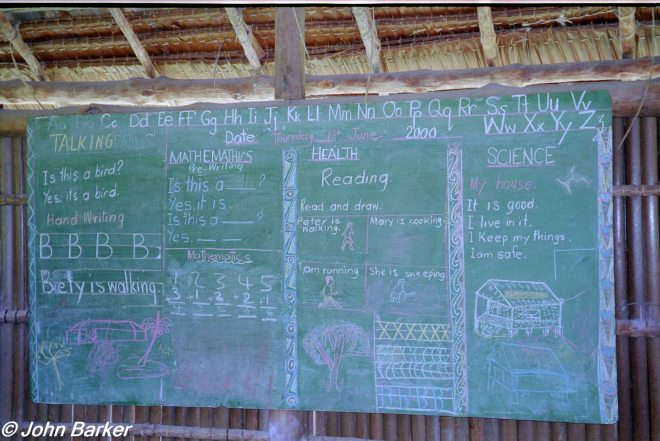 Aa Bb Cc Dd Ee Ff Gg Hh Ii Jj Kk Ll Mm Nn Oo Pp Qq Rr Ss Tt Uu Vv
Ww Xx Yy Zz
Date Thursday 1st June 2000
TALKING
Is this a bird?
Yes, its a bird.
Hand Writing
B B B B
Bety is walking.
MATHEMATHICS
Pre-Writing
Is this a ___?
Yes, it is.
Is this a ___?
Yes. __ __
Mathematics
2 3 4 5
HEALTH
Reading
Read and draw.
Peter is walking.
Mary is cooking.
I am running
She is sweeping
SCIENCE
My house
It is good.
I live in it.
I Keep my things.
I am safe.
© John Barker